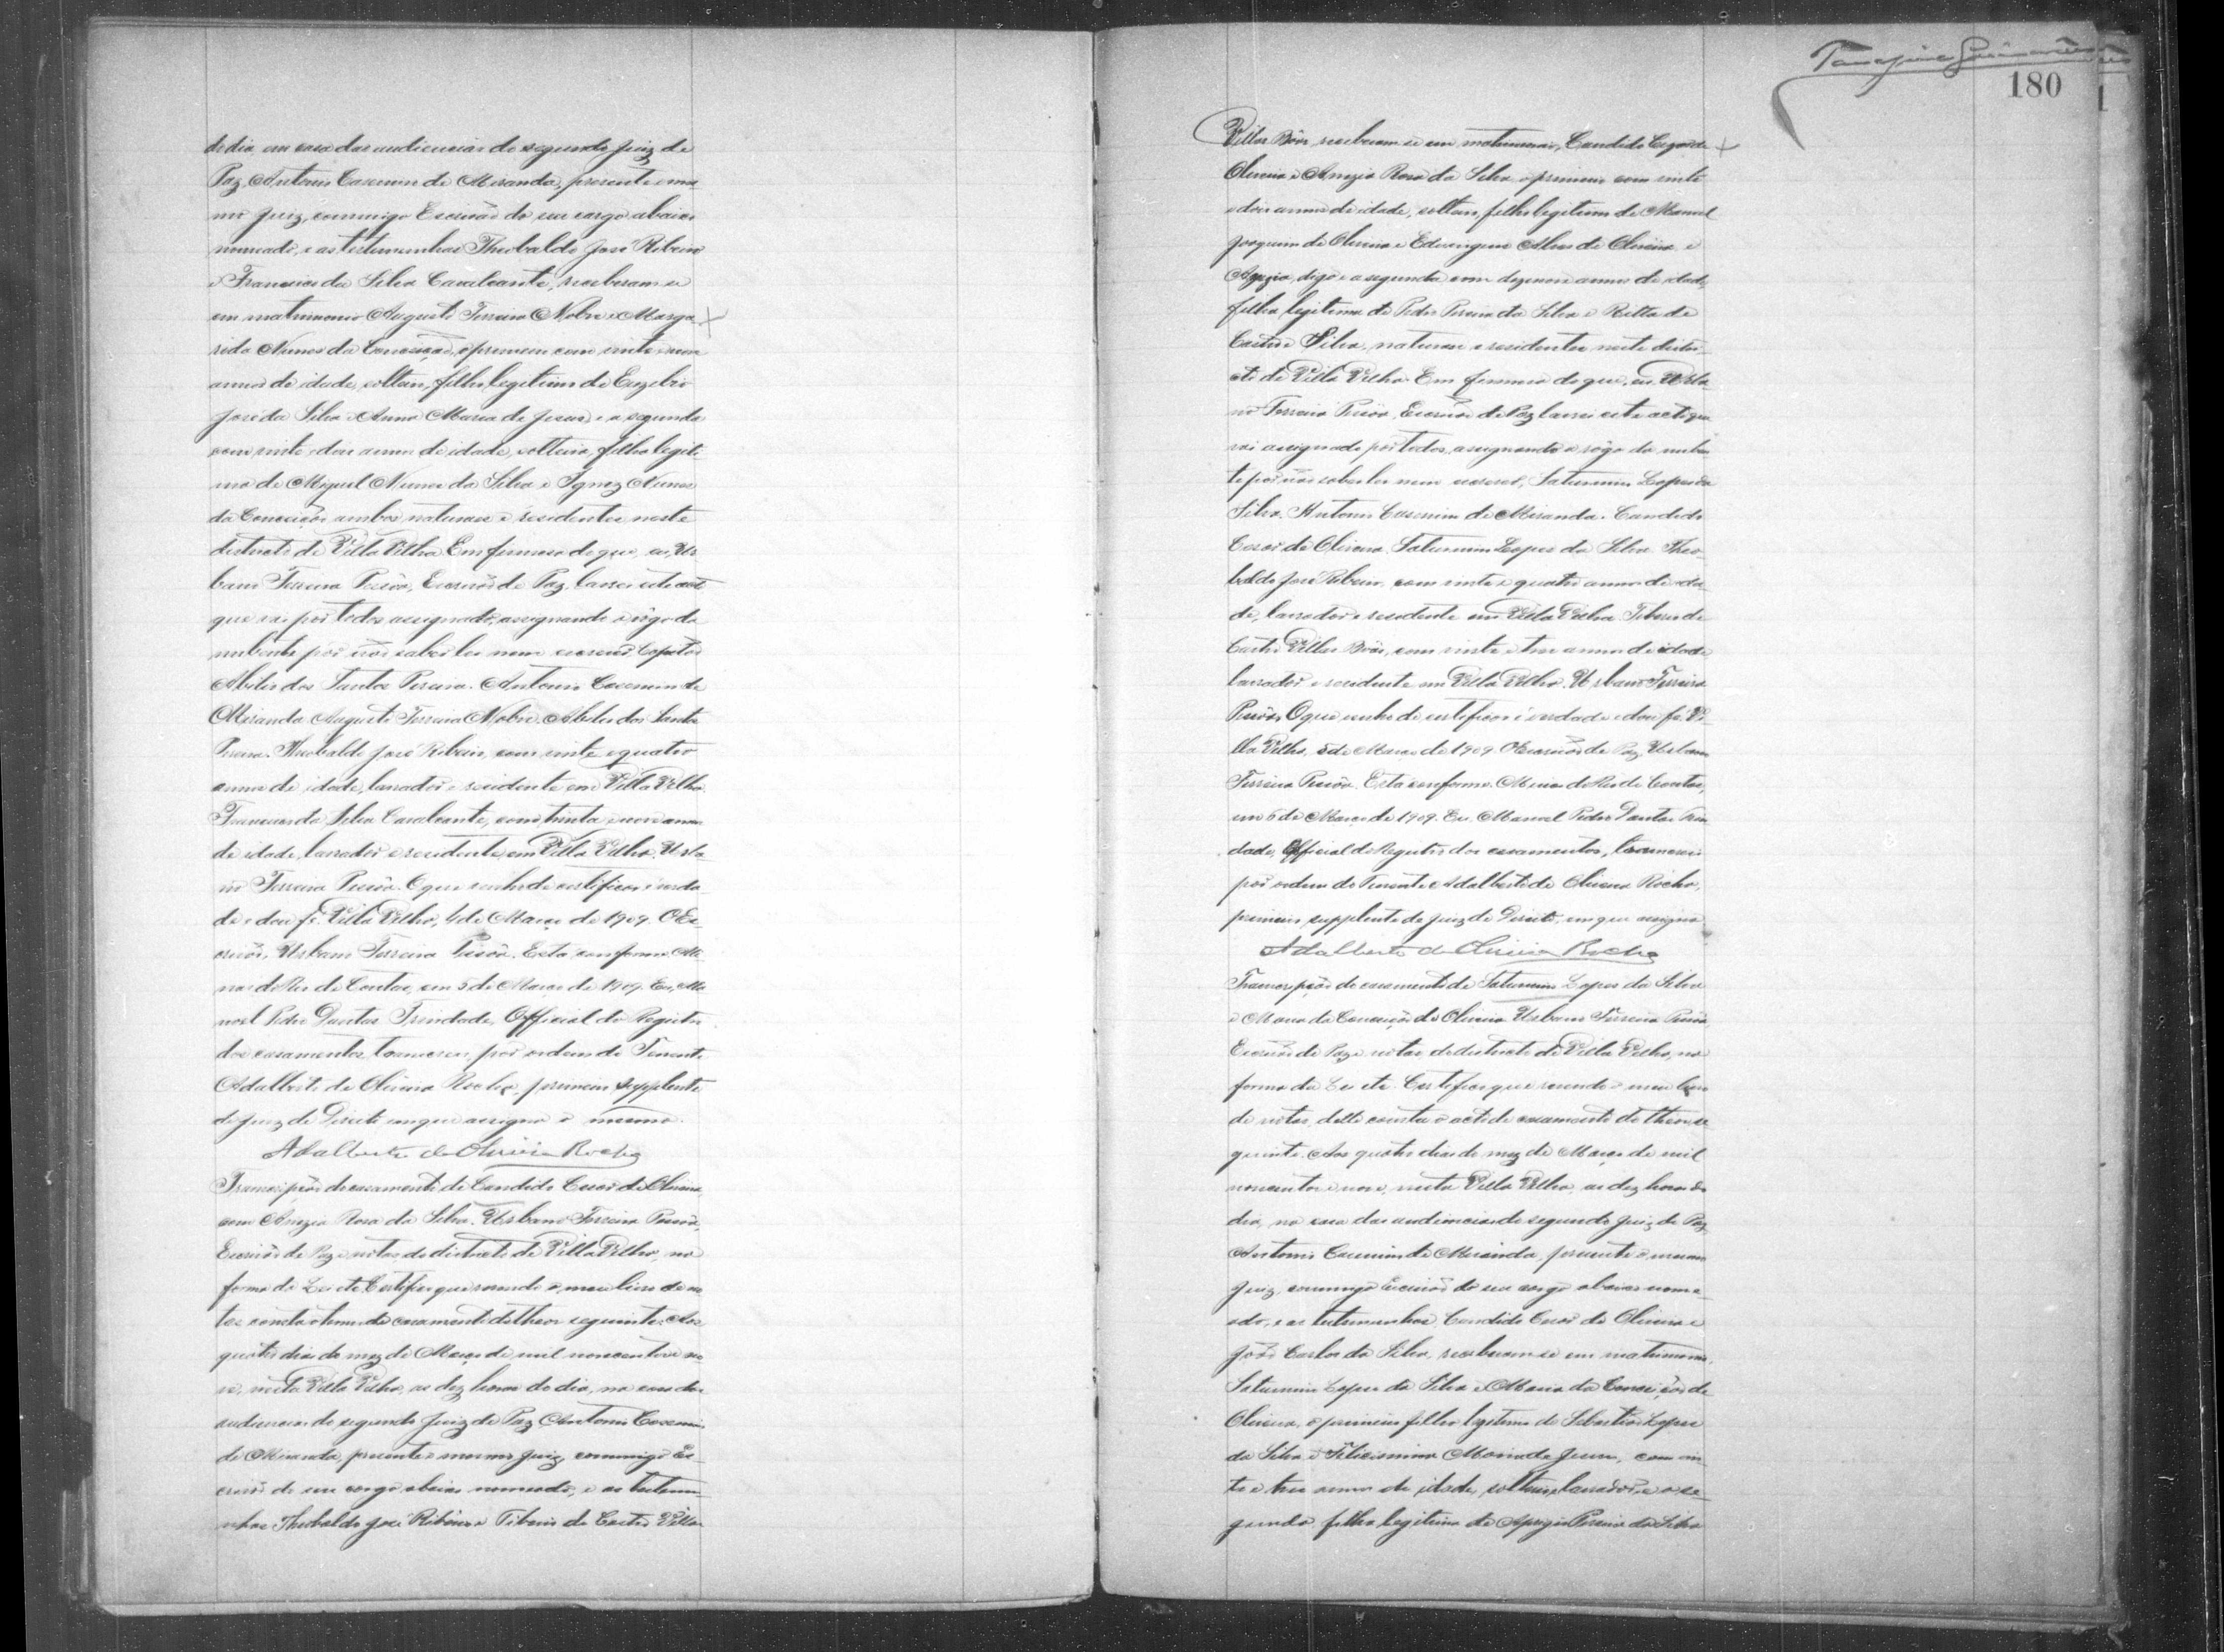 do dia, em casa das audiencias do segundo Juiz de
Paz Antonio Casemiro de Miranda, presente o mes
mo Juiz, commigo Escrivão do seu cargo abaixo
nomeado, e as testemunhas Theobaldo José Ribeiro
e Francisco da Silva Cavalcante, receberam-se
em matrimonio Augusto Ferreira Nobre e Marga
rida Nunes da Conceição, o primeiro com vinte e nove
annos de idade, solteiro, filho legitimo de Euzebio
José da Silva e Anna Maria de Jesus, e a segunda
com vinte e dous annos de idade, solteira, filha legiti
ma de Miguel Nunes da Silva e Ignez Nunes
da Conceição ambos naturaes e residentes neste
districto de Villa Velha. Em firmeza do que, eu, Ur
bano Ferreira Escrivão de Paz, lavrei este acto
que vai por todos assignado, assignando a rôgo da
nubente por não saber ler nem escrever Capitão
Abilio dos Santos Pereira. Antonio Casemiro de
Miranda Augusto Ferreira Nobre. Abilio dos Santos
Pereira. Theobaldo José Ribeiro, com vinte e quatro
annos de idade, lavrador e residente em Villa Velha.
Francisco da Silva Cavalcante, com trinta e nove annos
de idade, lavrador e residente em Villa Velha. Urba
no Ferreira. O que venho de certificar é verda
de e dou fé. Villa Velha, 4 de Março de 1909. O Es
crivão, Urbano Ferreira. Está conforme. Mi
nas do Rio de Contas, em 5 de Março de 1909. Eu, Ma
noel Pedro Dantas Trindade, Official do Registro
dos casamentos, transcrevi por ordem do Tenente
Adalberto de Oliveira Rocha, primeiro supplente
do Juiz de Direito em que assigna o mesmo.
Adalberto de Oliveira Rocha
Transcripção do casamento de Candido Cesar de Oliveira
com Rosa da Silva. Urbano Ferreira
Escrivão de Paz e notas do districto de Villa Velha, na
forma da Lei etc. Certifico que revendo o meu livro de no
tas consta o termo de casamento do theor seguinte: Aos
quatro dias do mez de Março de mil novecentos e no
ve, nesta Villa Velha, as dez horas do dia, na casa das
audiencias do segundo Juiz de Paz Antonio Casemiro
de Miranda, presente o mesmo Juiz, commigo Es
crivão do seu cargo abaixo nomeado, e as testemu
nhas Theobaldo José Ribeiro e Tiburcio de Castro Villas
180
Villas Bôas, receberam-se em matrimonio, Candido Cezar de
Oliveira e Rosa da Silva o primeiro com vinte
e dois annos de idade, solteiro, filho legitimo de Manoel
Joaquim de Oliveira e Edwirgens Alves de Oliveira e
digo e a segunda com dezenove annos de idade,
filha legitima de Pedro Pereira da Silva e Ritta de
Castro e Silva, naturaes e residentes neste distri
cto de Villa Velha. Em firmeza do que, eu, Urba
no Ferreira Escrivão de Paz lavrei este acto que
vai assignado por todos, assignando a rôgo da nuben
te por não saber ler nem escrever, Saturnino Lopes da
Silva. Antonio Casemiro de Miranda. Candido
Cesar de Oliveira. Saturnino Lopes da Silva. Theo
baldo José Ribeiro, com vinte e quatro annos de ida
de, lavrador e residente em Villa Velha. Tiburcio de
Castro Villas Bôas, com vinte e tres annos de idade
lavrador e residente em Villa Velha. Urbano Ferreira
O que venho de certificar é verdade e dou fé. Vi
lla Velha, 5 de Março de 1909. O Escrivão de Paz, Urbano
Ferreira. Está conforme. Minas do Rio de Contas,
em 6 de Março de 1909. Eu, Manoel Pedro Dantas Trin
dade, Official do Registro dos casamentos, transcrevi
por ordem do Tenente Adalberto de Oliveira Rocha,
primeiro supplente do Juiz de Direito, em que assigna
Adalberto de Oliveira Rocha
Transcripção do casamento de Saturnino Lopes da Silva
e Maria da Conceição de Oliveira. Urbano Ferreira
Escrivão de Paz e notas do districto de Villa Velha, na
forma da Lei etc. Certifico que revendo o meu livro
de notas, delle consta o acto de casamento do theor se
guinte: Aos quatro dias do mez de Março de mil
novecentos e nove, nesta Villa Velha, as dez horas do
dia, na casa das audiencias do segundo Juiz de Paz,
Antonio Casemiro de Miranda, presente o mesmo
Juiz, commigo Escrivão do seu cargo abaixo nome
ado, e as testemunhas, Candido Cesar de Oliveira e
João Carlos da Silva, receberam-se em matrimonio,
Saturnino Lopes da Silva e Maria da Conceição de
Oliveira, o primeiro filho legitimo de Sebastião Lopes
da Silva e Felicissima Maria de Jesus, com vin
te e tres annos de idade, solteiro, lavrador, e a se
gunda filha legitima de Aprigio Pereira da Silva